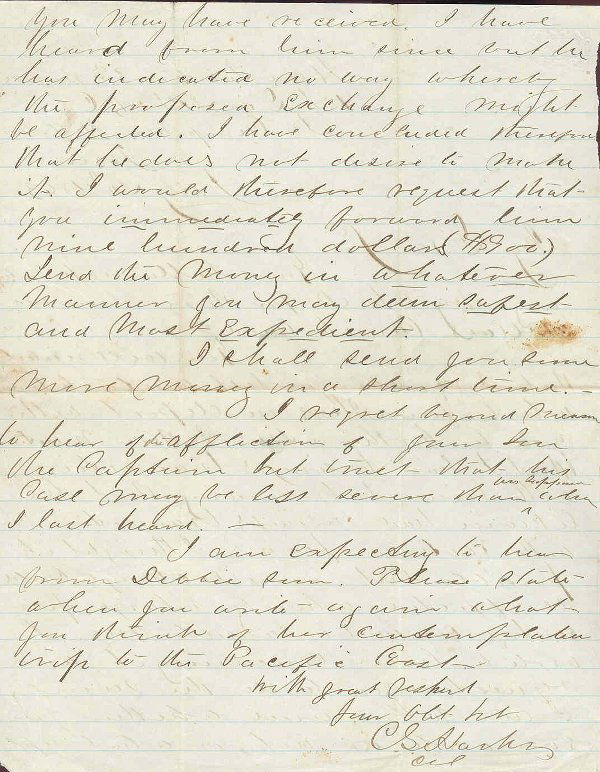 you may have received. I have
heard from him since but he
has indicated no way whereby
the proposed Exchange might
be affected. I have concluded therefore
that he does not desire to make
it. I would therefore request that
you immediately forward him
nine hundred dollars ($900.)
Send the money in whatever
manner you may deem safest
and most Expedient.
I shall send you some
more money in a short time. —
I regret beyond measure
to hear of affliction of your Son
the Captain but trust that his
case may be less severe than when
I last heard. —
I am expecting to hear
from Debbie soon. Please state
when you write again what
you think of her contemplated
trip to the Pacific Coast
With great respect
Your Obt
Col